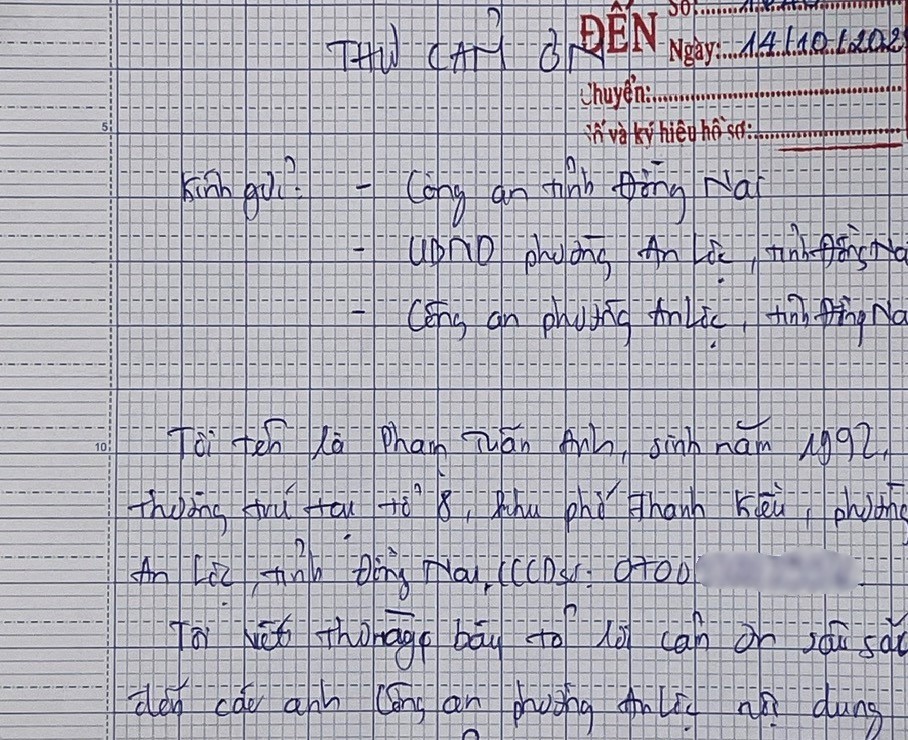 Số:
THƯ CẢM ƠN
ĐẾN
Ngày: 14/10/202
Chuyển:
Số và ký hiệu hồ sơ:
5
Kính gửi: - Công an tỉnh Đồng Nai
- UBND phường An Lộc, tỉnh Đồng Na
- Công an phường An Lộc, tỉnh Đồng Na
10 Tôi tên là Phạm Tuấn Anh, sinh năm 1992,
thường trú tại tổ 8, khu phố Thanh Kiều, phường
An Lộc, tỉnh Đồng Nai, CCCD số: 0700
Tôi viết thư này bày tỏ lời cảm ơn sâu sắc
đến các anh Công an phường An Lộc nội dung